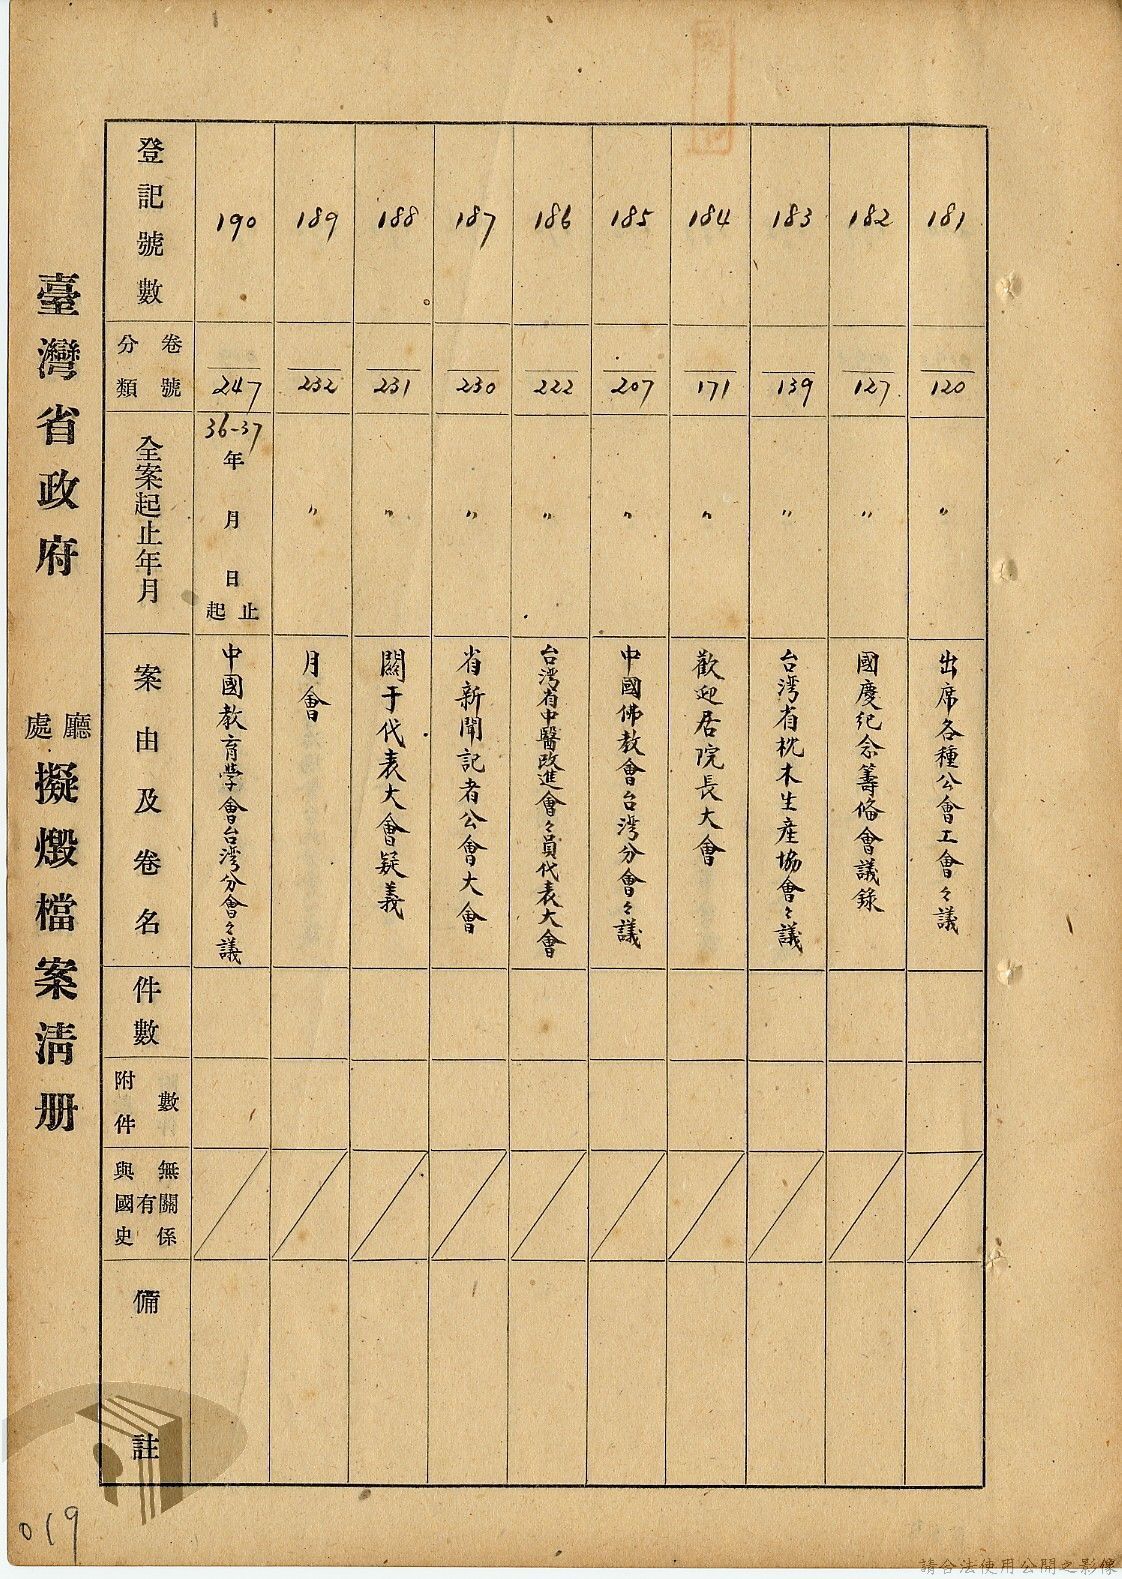 臺灣省政府 廳處 擬燬檔案清册
登記號數
190
189
188
187
186
185
184
183
182
181
分類 卷號
247
232
231
230
222
207
171
139
127
120
全案起止年月
36-37
年 月 日 起止
〃
〃
〃
〃
〃
〃
〃
〃
〃
案由及卷名
中國教育學會台灣分會々議
月會
關于代表大會疑義
省新聞記者公會大會
台灣省中醫改進會々員代表大會
中國佛教會台灣分會々議
歡迎居院長大會
台灣省枕木生產協會々議
國慶紀念籌備會議錄
出席各種公會工會々議
件數
附件 數
與國史 有無關係
備註
019
請合法使用公開之影像